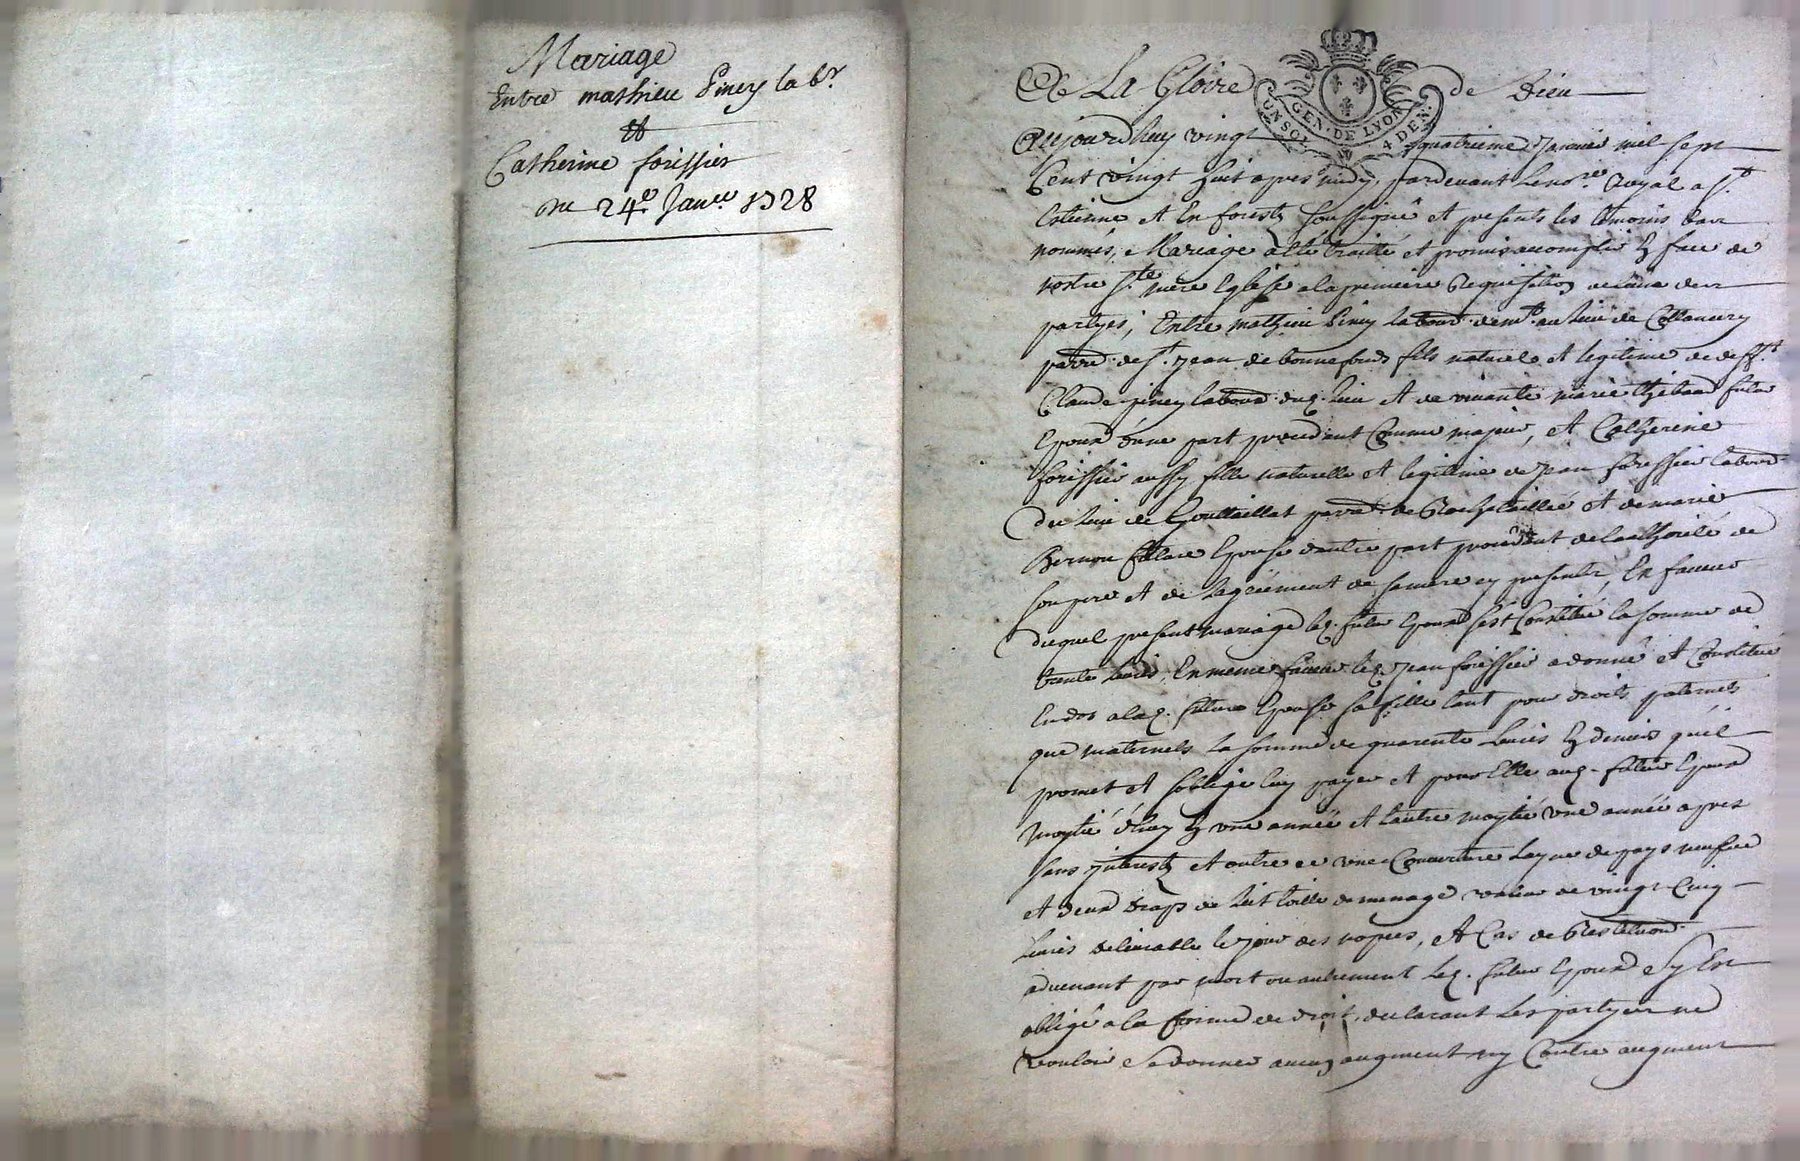 Mariage
Entre mathieu Piney lab.r
et
Catherine forissier
Du 24.e Janv.er 1728
A La Gloire de Dieu
GEN. DE LYON
UN SOL 4 DEN.
Aujourdhuy vingt quatrieme Janvier mil sept
Cent vingt huit apres midy, pardevant Le no.re Royal a S.t
Estienne et En forests soussigné et presents les temoins bas
nommés, Mariage a êté traitté et promis accomplir En face de
nostre S.te mere Eglise a la premiere Requisition de Lune des
partyes; Entre mathieu Piney labour. dem.t au lieu de
parr. de S.t Jean de bonnefonds fils naturel et legitime de deff.t
Claude piney labour. dud. lieu et de vivante marie thibaud futur
Epoux d'une part procedant Comme majeur, et Catherine
forissier aussy fille naturelle et legitime de Jean forissier labour.
du lieu de parr. de Rochetaillée et de marie
Bernou future Epouse dautre part procedant de Lauthorité de
son pere et de Lagreement de sa mere cy presents, En faveur
duquel present mariage led. futur Epoux sest Constitué la somme de
trente livres, En meme faveur led. Jean forissier a donné et Constitué
En dot a lad. future Epouse sa fille tant pour droits paternels
que maternels la somme de quarente Livres En deniers quil
promet et soblige luy payer et pour Elle aud. futur Epoux
moytié d'huy En une année et Lautre moytié une année apres
sans jnterests et outre ce une Couverture Layne de pays neufve
et deux draps de Lit toille de menage valeur de vingt Cinq
livres delivrable le jour des nopces, et Cas de Restitution
advenant par mort ou autrement Led. futur Epoux sy Est
obligé a la forme de droit, declarant Les partyes ne
vouloir se donner aucun augment ny Contre augment